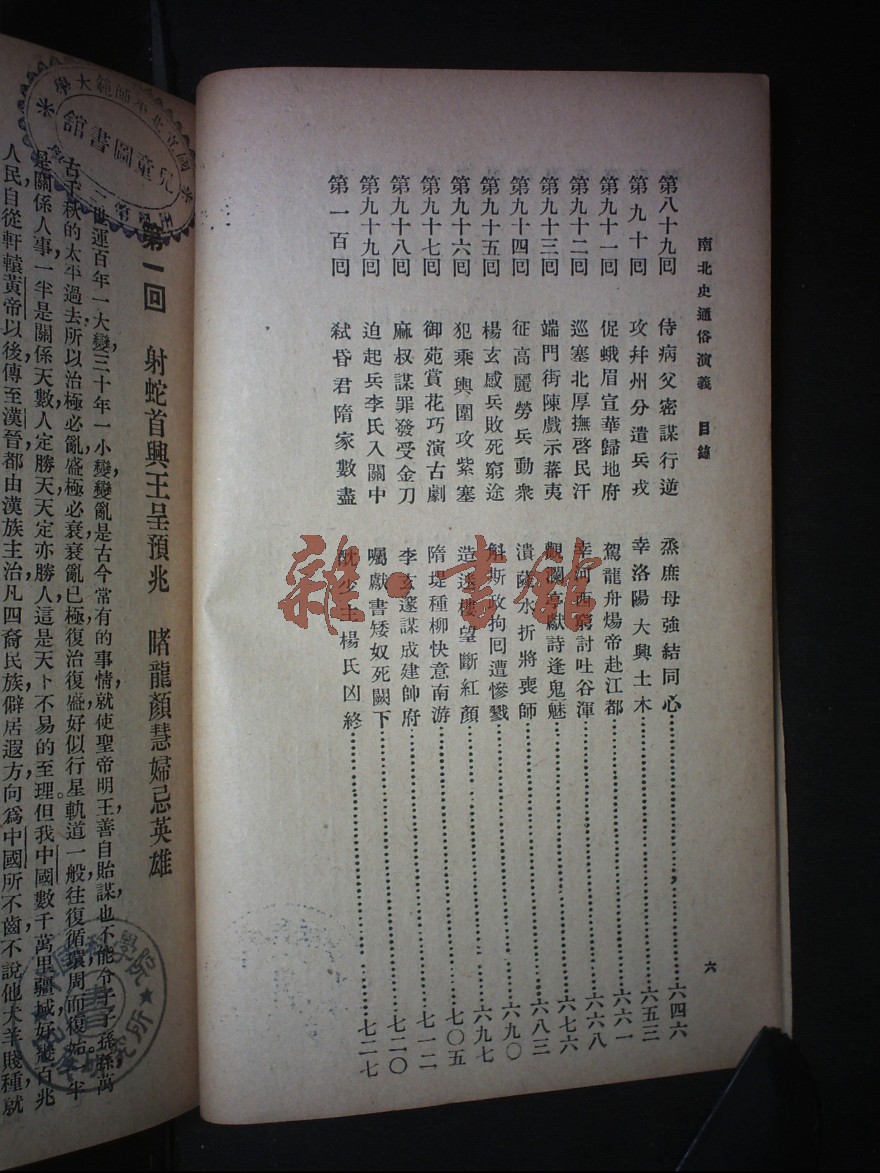 南北史通俗演義　目錄
六
第八十九回　侍病父密謀行逆　烝庶母強結同心……六四六
第九十回　攻幷州分遣兵戎　幸洛陽大興土木……六五三
第九十一回　促蛾眉宣華歸地府　駕龍舟煬帝赴江都……六六一
第九十二回　巡塞北厚撫啓民汗　幸河西窮討吐谷渾……六六八
第九十三回　端門街陳戲示蕃夷　觀瀾亭獻詩逢鬼魅……六七六
第九十四回　征高麗勞兵動衆　潰薩水折將喪師……六八三
第九十五回　楊玄感兵敗死窮途　斛斯政拘回遭慘戮……六九〇
第九十六回　犯乘輿圍攻紫塞　造迷樓望斷紅顏……六九七
第九十七回　御苑賞花巧演古劇　隋堤種柳快意南游……七〇五
第九十八回　麻叔謀罪發受金刀　李玄邃謀成建帥府……七一二
第九十九回　迫起兵李氏入關中　囑獻書矮奴死闕下……七二〇
第一百回　弒昏君隋家數盡　酖少主楊氏凶終……七二七
雜·書館
第一回　射蛇首興王呈預兆　睹龍顏慧婦忌英雄
世運百年一大變，三十年一小變，變亂是古今常有的事情，就使聖帝明王，善自貽謀，也不能令子子孫孫，萬
古千秋的太平過去，所以治極必亂，盛極必衰，衰亂已極，復治復盛，好似行星軌道一般，往復循環，周而復始。一半
是關係人事，一半是關係天數，人定勝天，天定亦勝人，這是天下不易的至理。但我中國數千萬里疆域，好幾百兆
人民，自從軒轅黃帝以後，傳至漢晉，都由漢族主治，凡四裔民族，僻居遐方，向爲中國所不齒，不說他犬羊賤種，就
國立北平師範大學
兒童圖書館